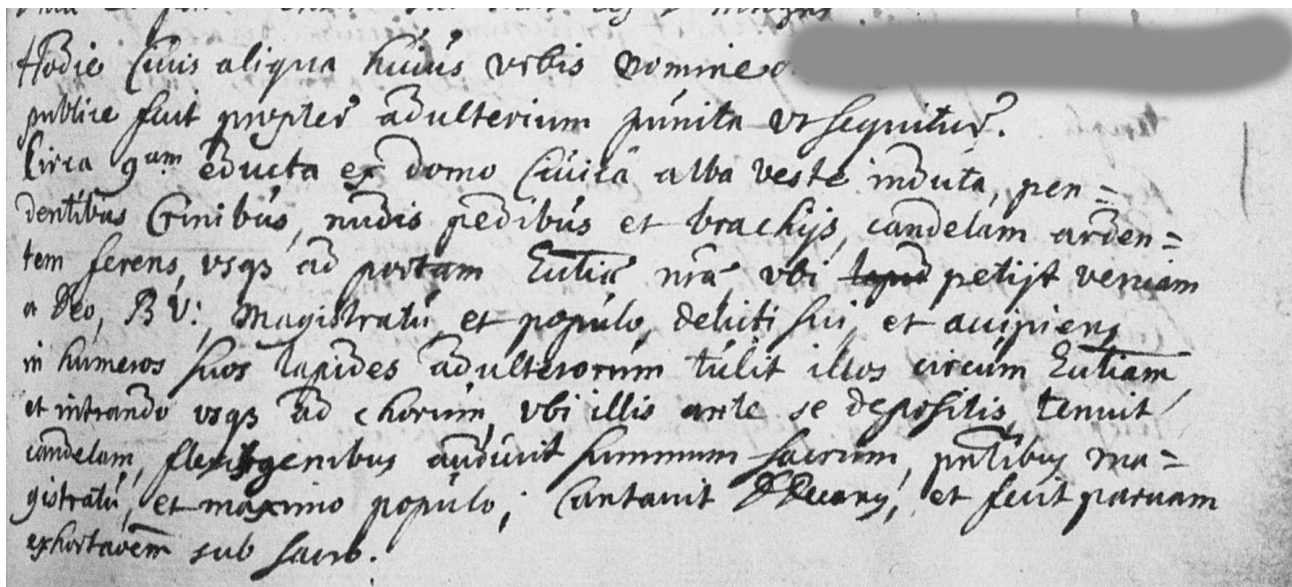 Hodie Civis aliqua huius urbis nomine
publice fuit propter adulterium punita ut sequitur.
Circa 9am educta ex domo Civica alba veste induta, pen=
dentibus Crinibus, nudis pedibus et brachijs, candelam arden=
tem ferens, usqs ad portam Ecclia nrã ubi petijt veniam
a Deo, B V:, Magistratu, et populo, delicti sui, et accipiens
in humeros suos lapides adulterorum tulit illos circum Eccliam,
et intrando usqs ad chorum, ubi illis ante se depositis, tenuit
candelam, flexis genibus audivit summum sacrum, pntibus ma=
gistratu, et maximo populo; Cantavit et fecit parvam
exhortaõem sub sacro.